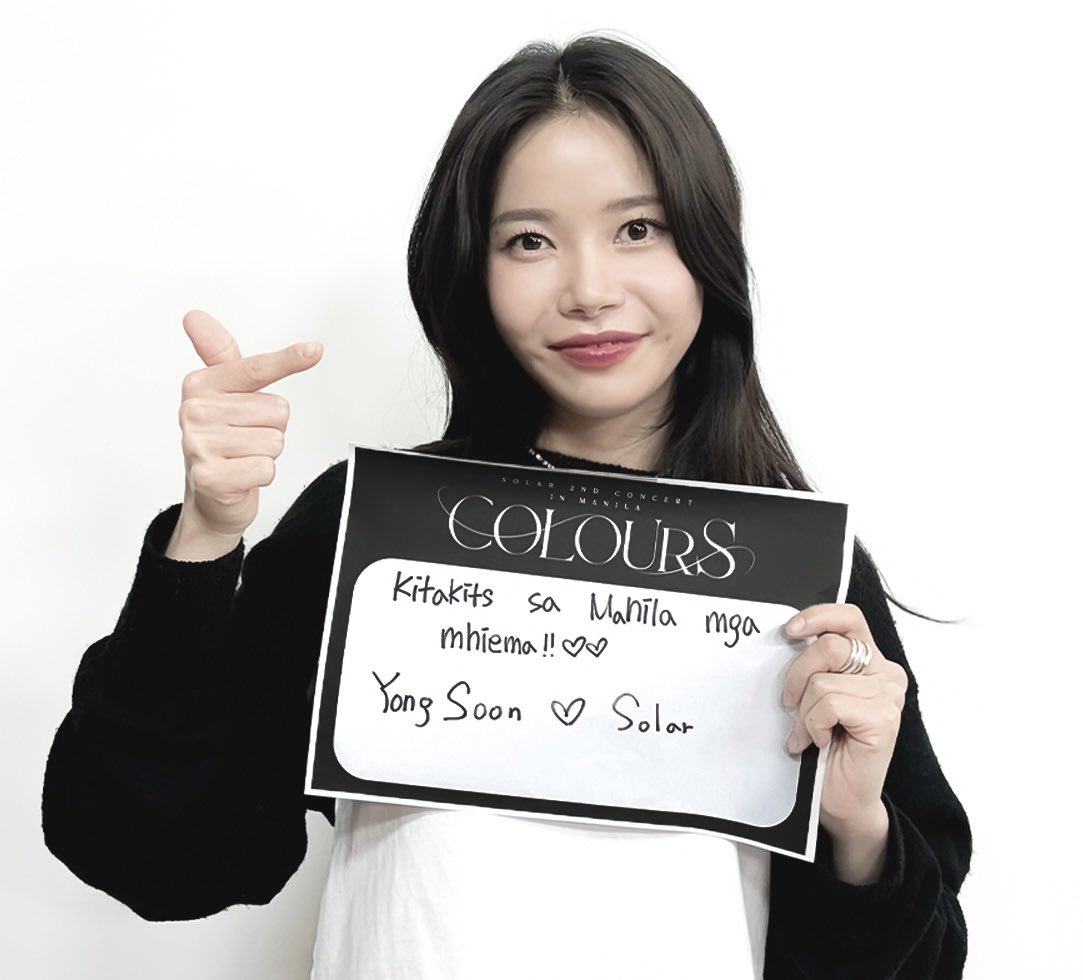 SOLAR 2ND CONCERT
IN MANILA
COLOURS
Kitakits sa Manila mga
mhiema!! ♡♡
Yong Soon ♡ Solar